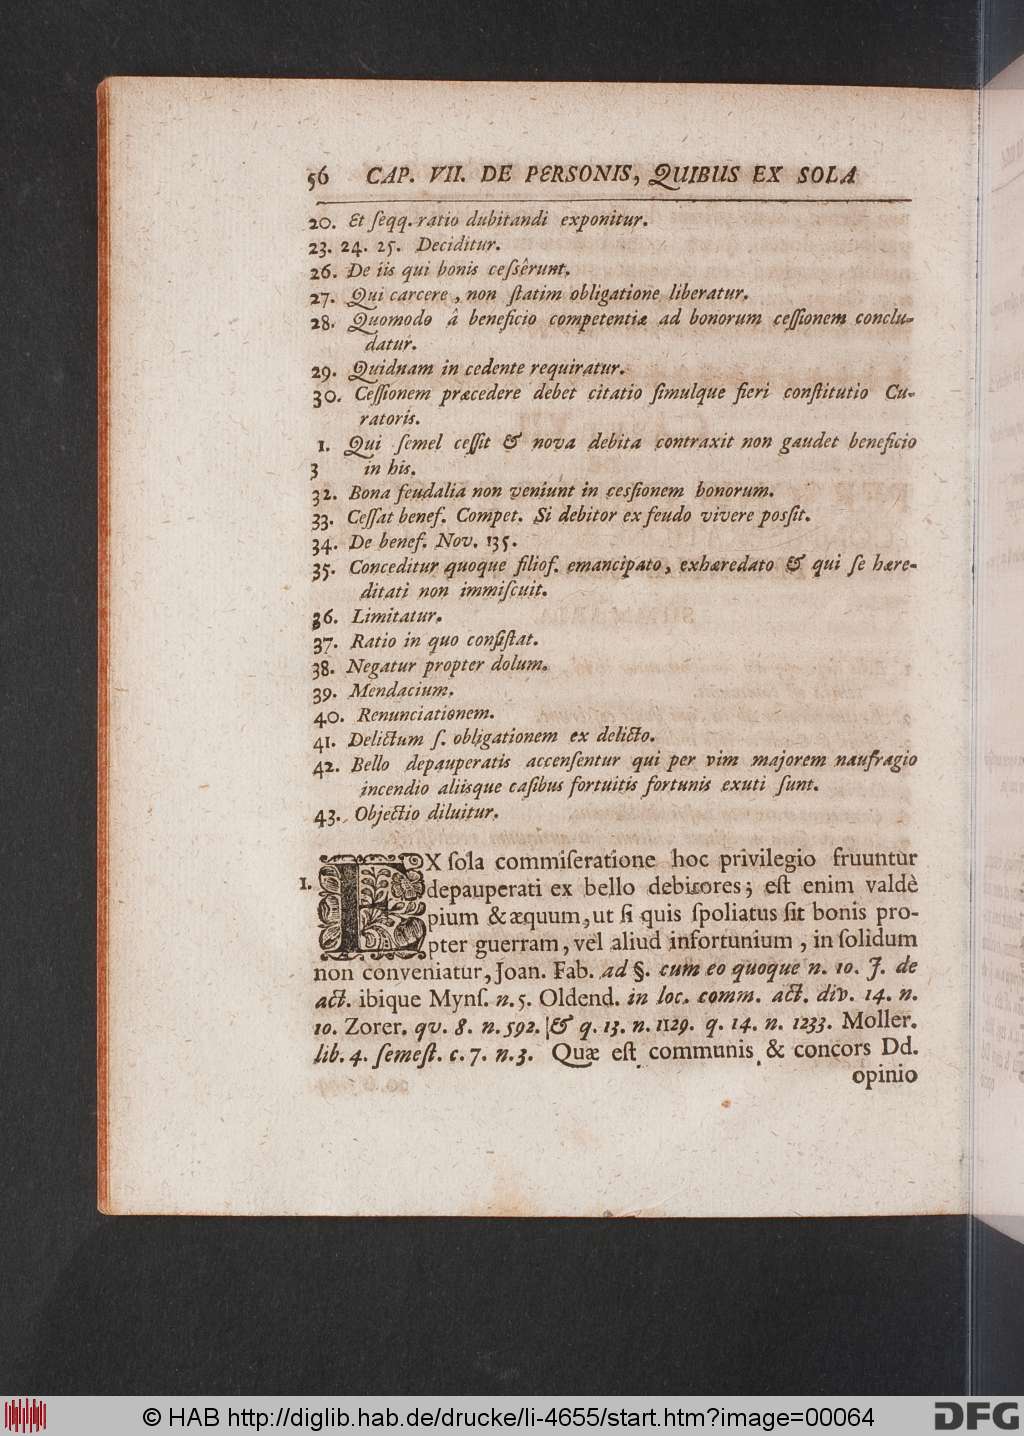 56 CAP. VII. DE PERSONIS, QUIBUS EX SOLA
20. Et ſeqq. ratio dubitandi exponitur.
23. 24. 25. Deciditur.
26. De iis qui bonis ceſsêrunt.
27. Qui carcere, non ſtatim obligatione liberatur.
28. Quomodo â beneficio competentiæ ad bonorum ceſſionem conclu-
datur.
29. Quidnam in cedente requiratur.
30. Ceſſionem præcedere debet citatio ſimulque fieri conſtitutio Cu-
ratoris.
1. Qui ſemel ceſſit & nova debita contraxit non gaudet beneficio
3 in his.
32. Bona feudalia non veniunt in cesſionem bonorum.
33. Ceſſat benef. Compet. Si debitor ex feudo vivere posſit.
34. De benef. Nov. 135.
35. Conceditur quoque filiof. emancipato, exhæredato & qui ſe hære-
ditati non immiſcuit.
36. Limitatur.
37. Ratio in quo conſiſtat.
38. Negatur propter dolum.
39. Mendacium.
40. Renunciationem.
41. Delictum ſ. obligationem ex delicto.
42. Bello depauperatis accenſentur qui per vim majorem naufragio
incendio aliisque caſibus fortuitis fortunis exuti ſunt.
43. Objectio diluitur.
1. EX ſola commiſeratione hoc privilegio fruuntur
depauperati ex bello debitores; eſt enim valdè
pium & æquum, ut ſi quis ſpoliatus ſit bonis pro-
pter guerram, vel aliud infortunium, in ſolidum
non conveniatur, Joan. Fab. ad §. cum eo quoque n. 10. J. de
act. ibique Mynſ. n. 5. Oldend. in loc. comm. act. div. 14. n.
10. Zorer. qv. 8. n. 592. & q. 13. n. 1129. q. 14. n. 1233. Moller.
lib. 4. ſemeſt. c. 7. n. 3. Quæ eſt communis & concors Dd.
opinio
© HAB http://diglib.hab.de/drucke/li-4655/start.htm?image=00064
DFG